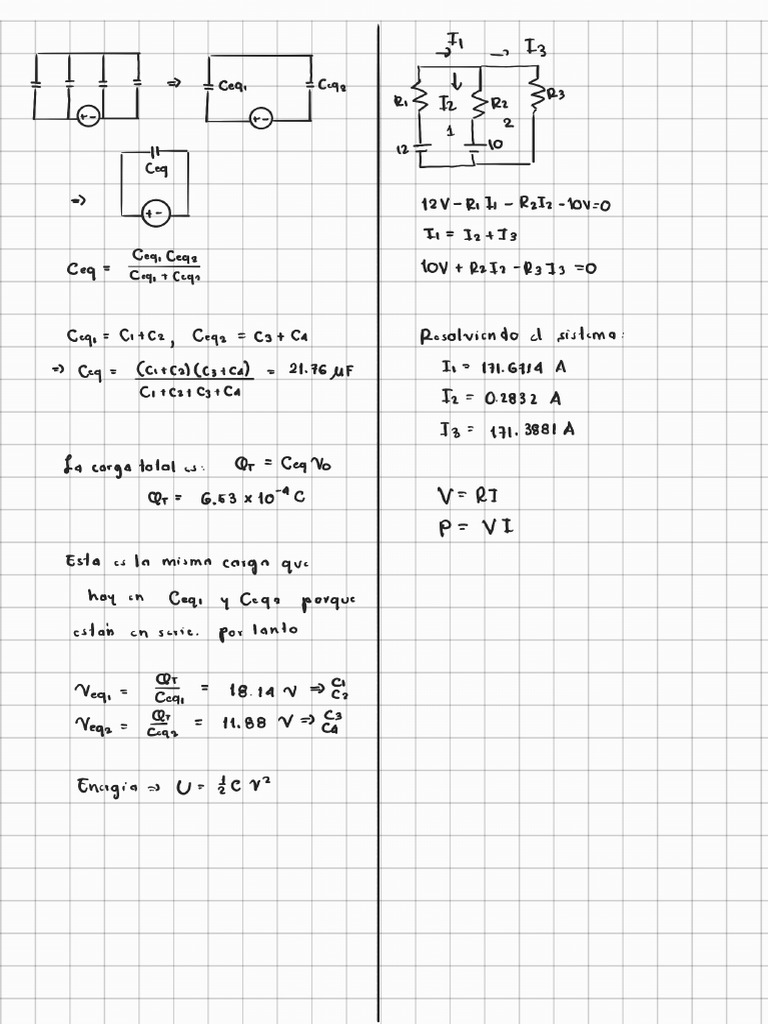 Ceq₁
Ceq₂
+ -
+ -
⇒
Ceq
+ -
⇒
Ceq = Ceq₁ Ceq₂ / Ceq₁ + Ceq₂
Ceq₁ = C₁ + C₂ , Ceq₂ = C₃ + C₄
⇒ Ceq = (C₁+C₂)(C₃+C₄) / C₁+C₂+C₃+C₄ = 21.76 μF
La carga total es: Q_T = Ceq V₀
Q_T = 6.53 × 10⁻⁴ C
Esta es la misma carga que
hay en Ceq₁ y Ceq₂ porque
están en serie. por tanto
Veq₁ = Q_T / Ceq₁ = 18.14 V ⇒ C₁ C₂
Veq₂ = Q_T / Ceq₂ = 11.88 V ⇒ C₃ C₄
Energía ⇒ U = ½ C V²
I₁
I₃
R₁
I₂
R₂
R₃
1
2
12
10
12V - R₁I₁ - R₂I₂ - 10V = 0
I₁ = I₂ + I₃
10V + R₂I₂ - R₃I₃ = 0
Resolviendo el sistema:
I₁ = 171.6714 A
I₂ = 0.2832 A
I₃ = 171.3881 A
V = RI
P = VI